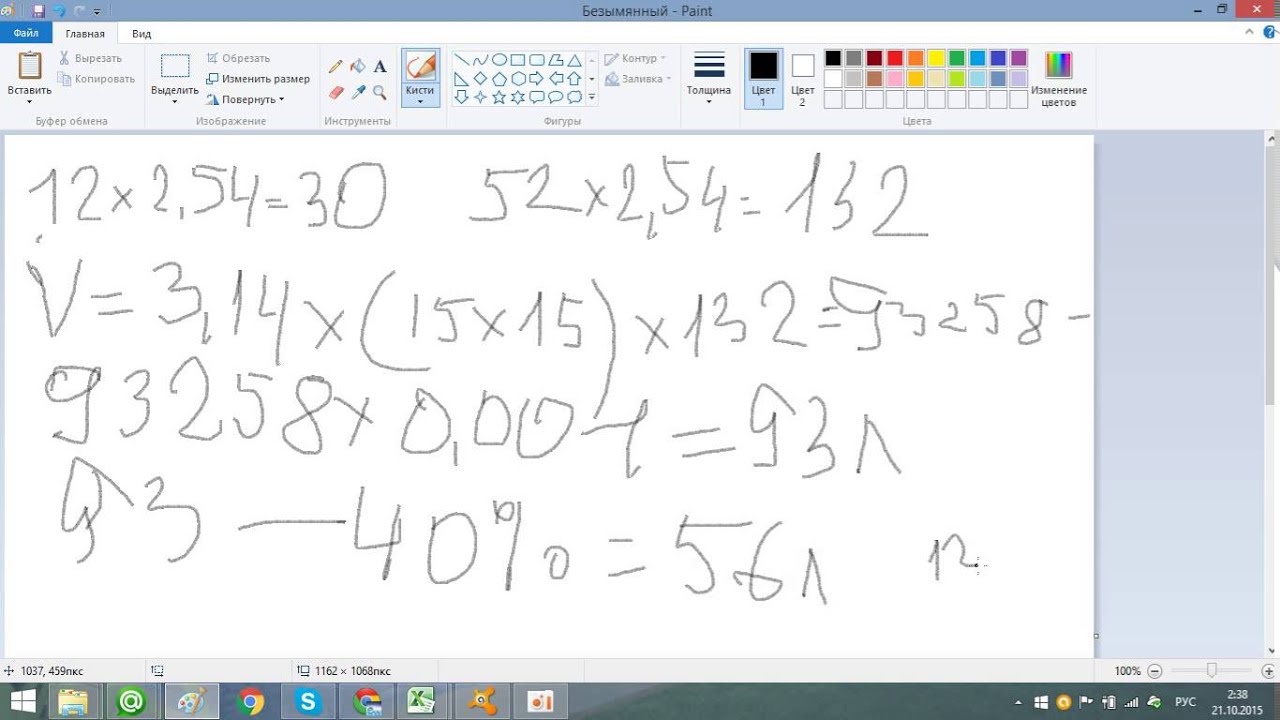 Безымянный - Paint
Файл Главная Вид
Вставить
Вырезать
Копировать
Буфер обмена
Выделить
Обрезать
Изменить размер
Повернуть
Изображение
Инструменты
Кисти
Контур
Заливка
Фигуры
Толщина
Цвет 1
Цвет 2
Цвета
Изменение цветов
12×2,54=30 52×2,54=132
V=3,14×(15×15)×132=93258-
93258×0,001=93л
93-40%=56л 12
1037, 459пкс 1162 × 1068пкс 100%
РУС 2:38
21.10.2015